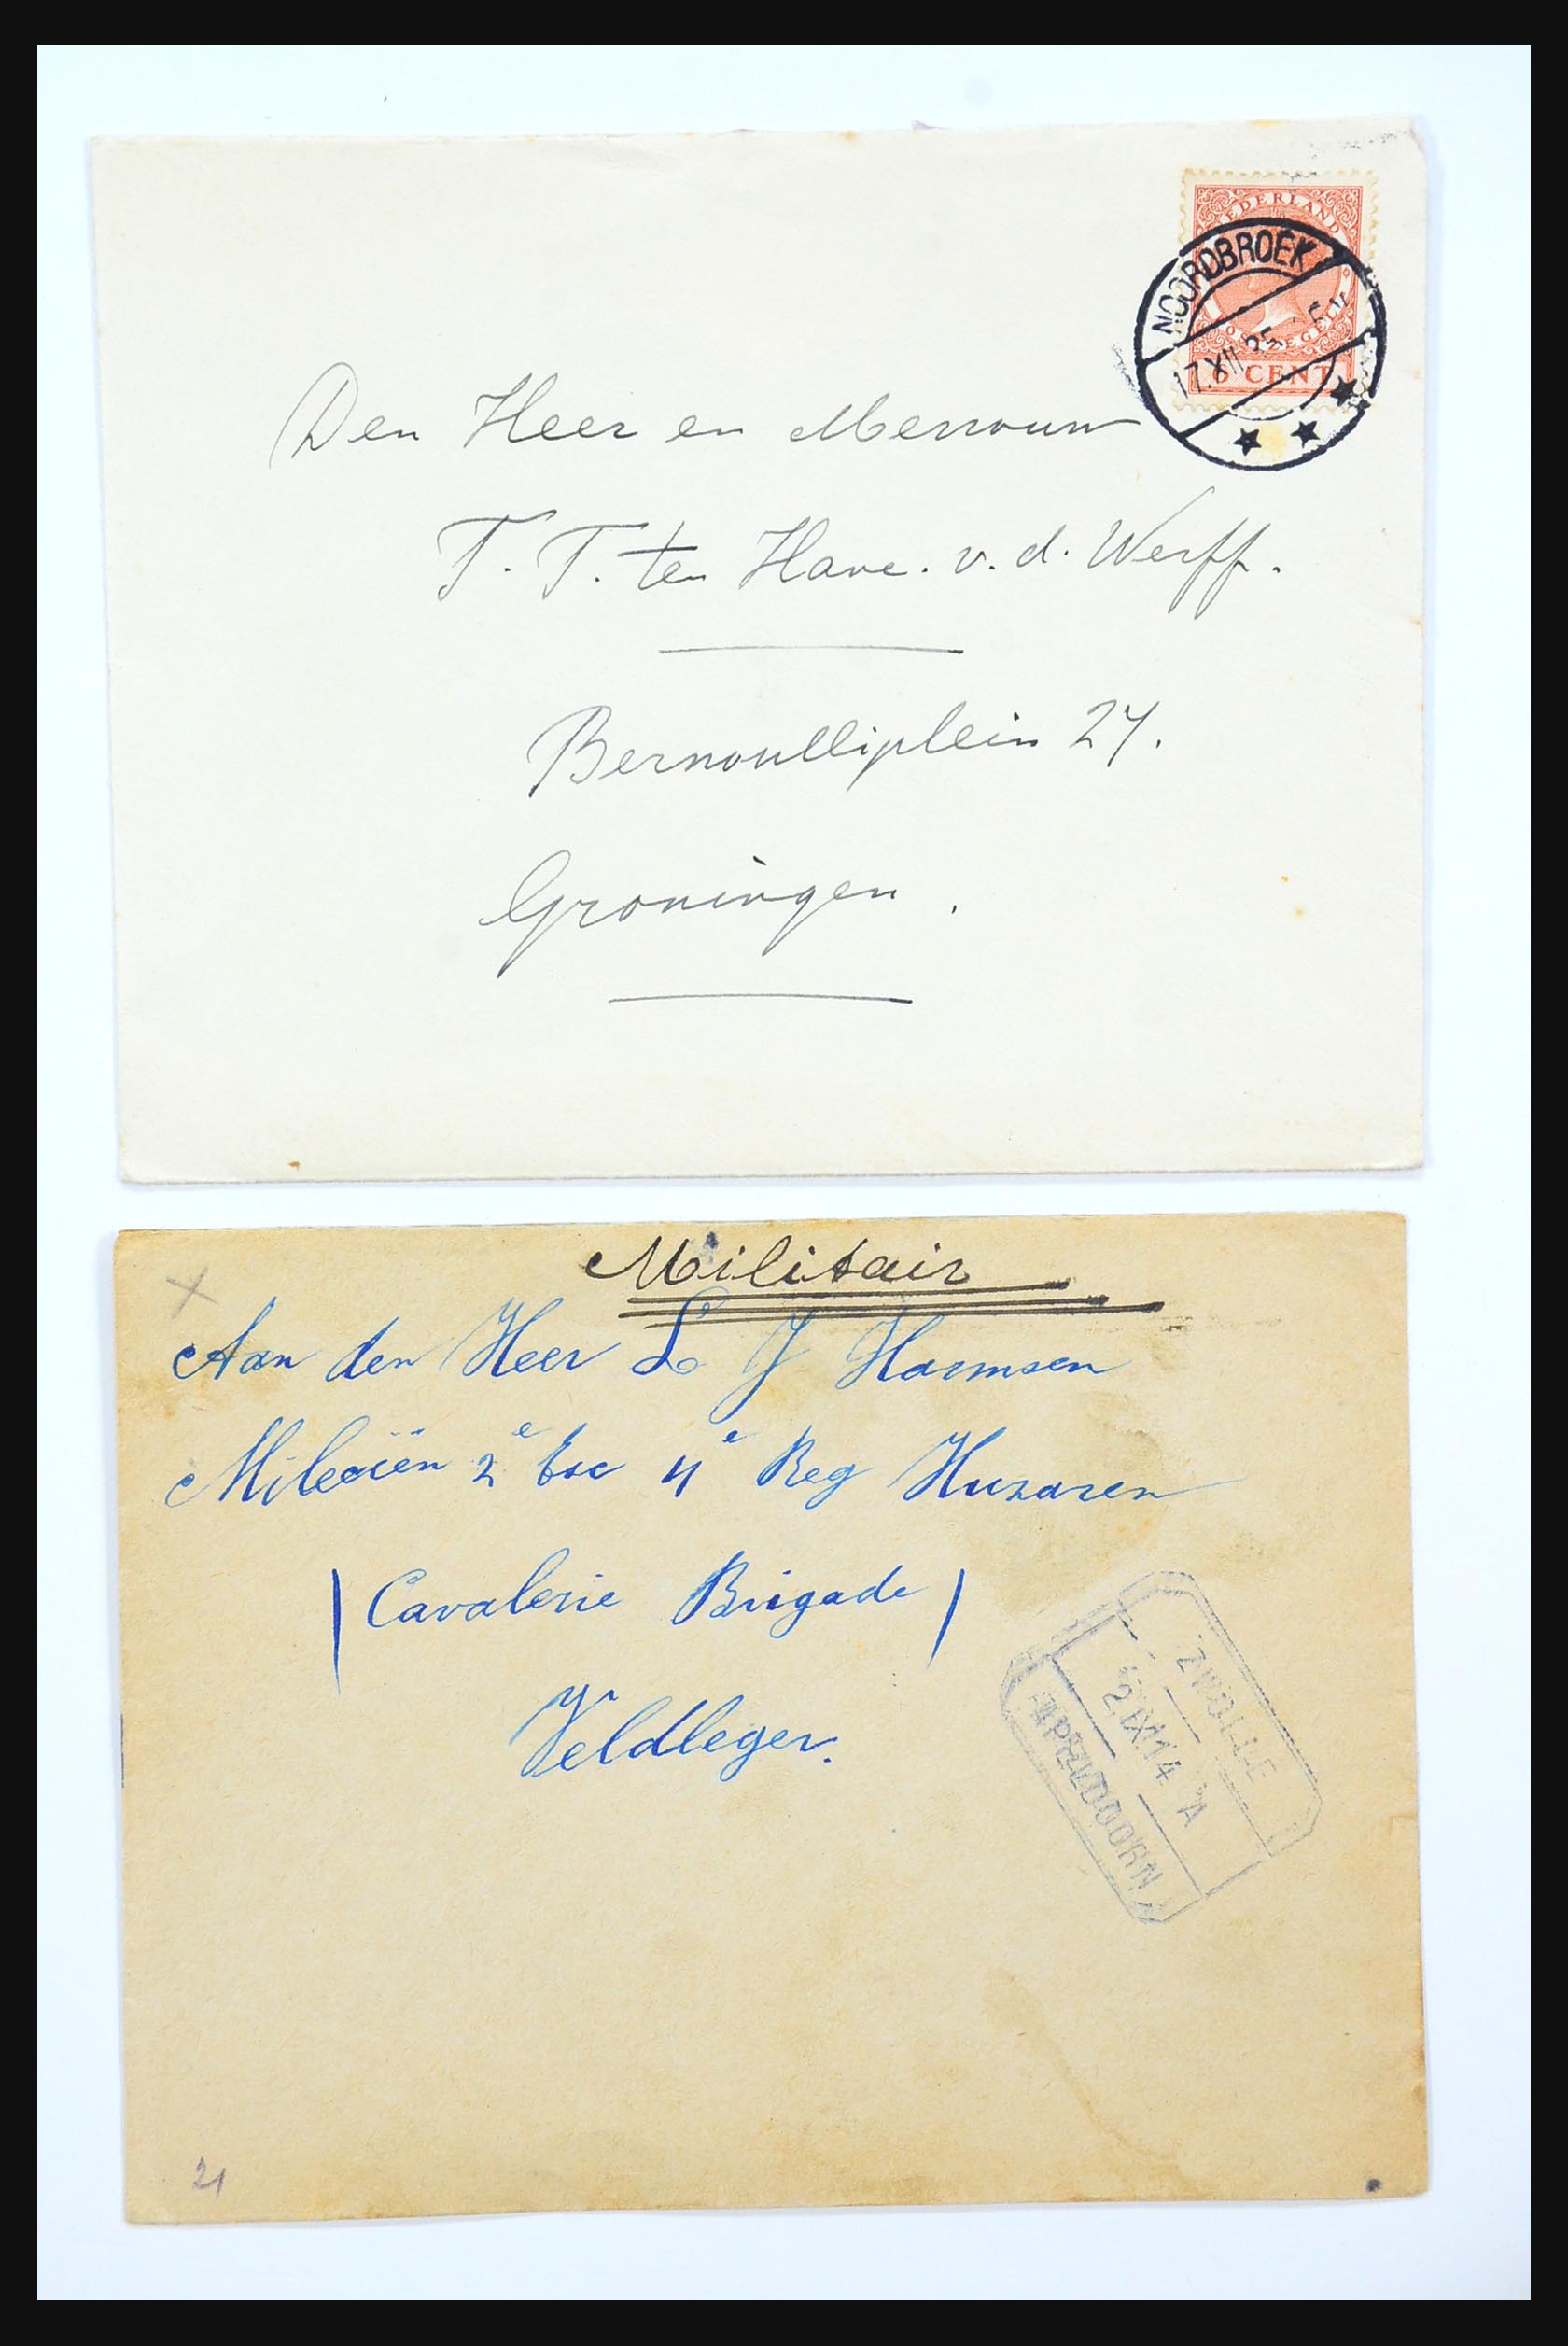 NEDERLAND
POSTZEGEL
6 CENT
NOORDBROEK
17.XII 35 5 V
Den Heer en Mevrouw
T. T. ten Have. v. d. Werff.
Bernoulliplein 27.
Groningen.
Militair
Aan den Heer L J Harmsen
Milecien 2e Esc 4e Reg Huzaren
(Cavalerie Brigade)
Veldleger.
ZWOLLE
2 IX 14 A
APELDOORN
21